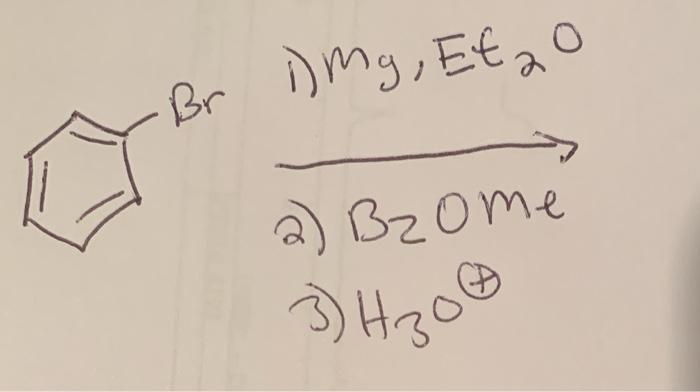 Br
1) Mg, Et2O
2) BzOMe
3) H3O⊕